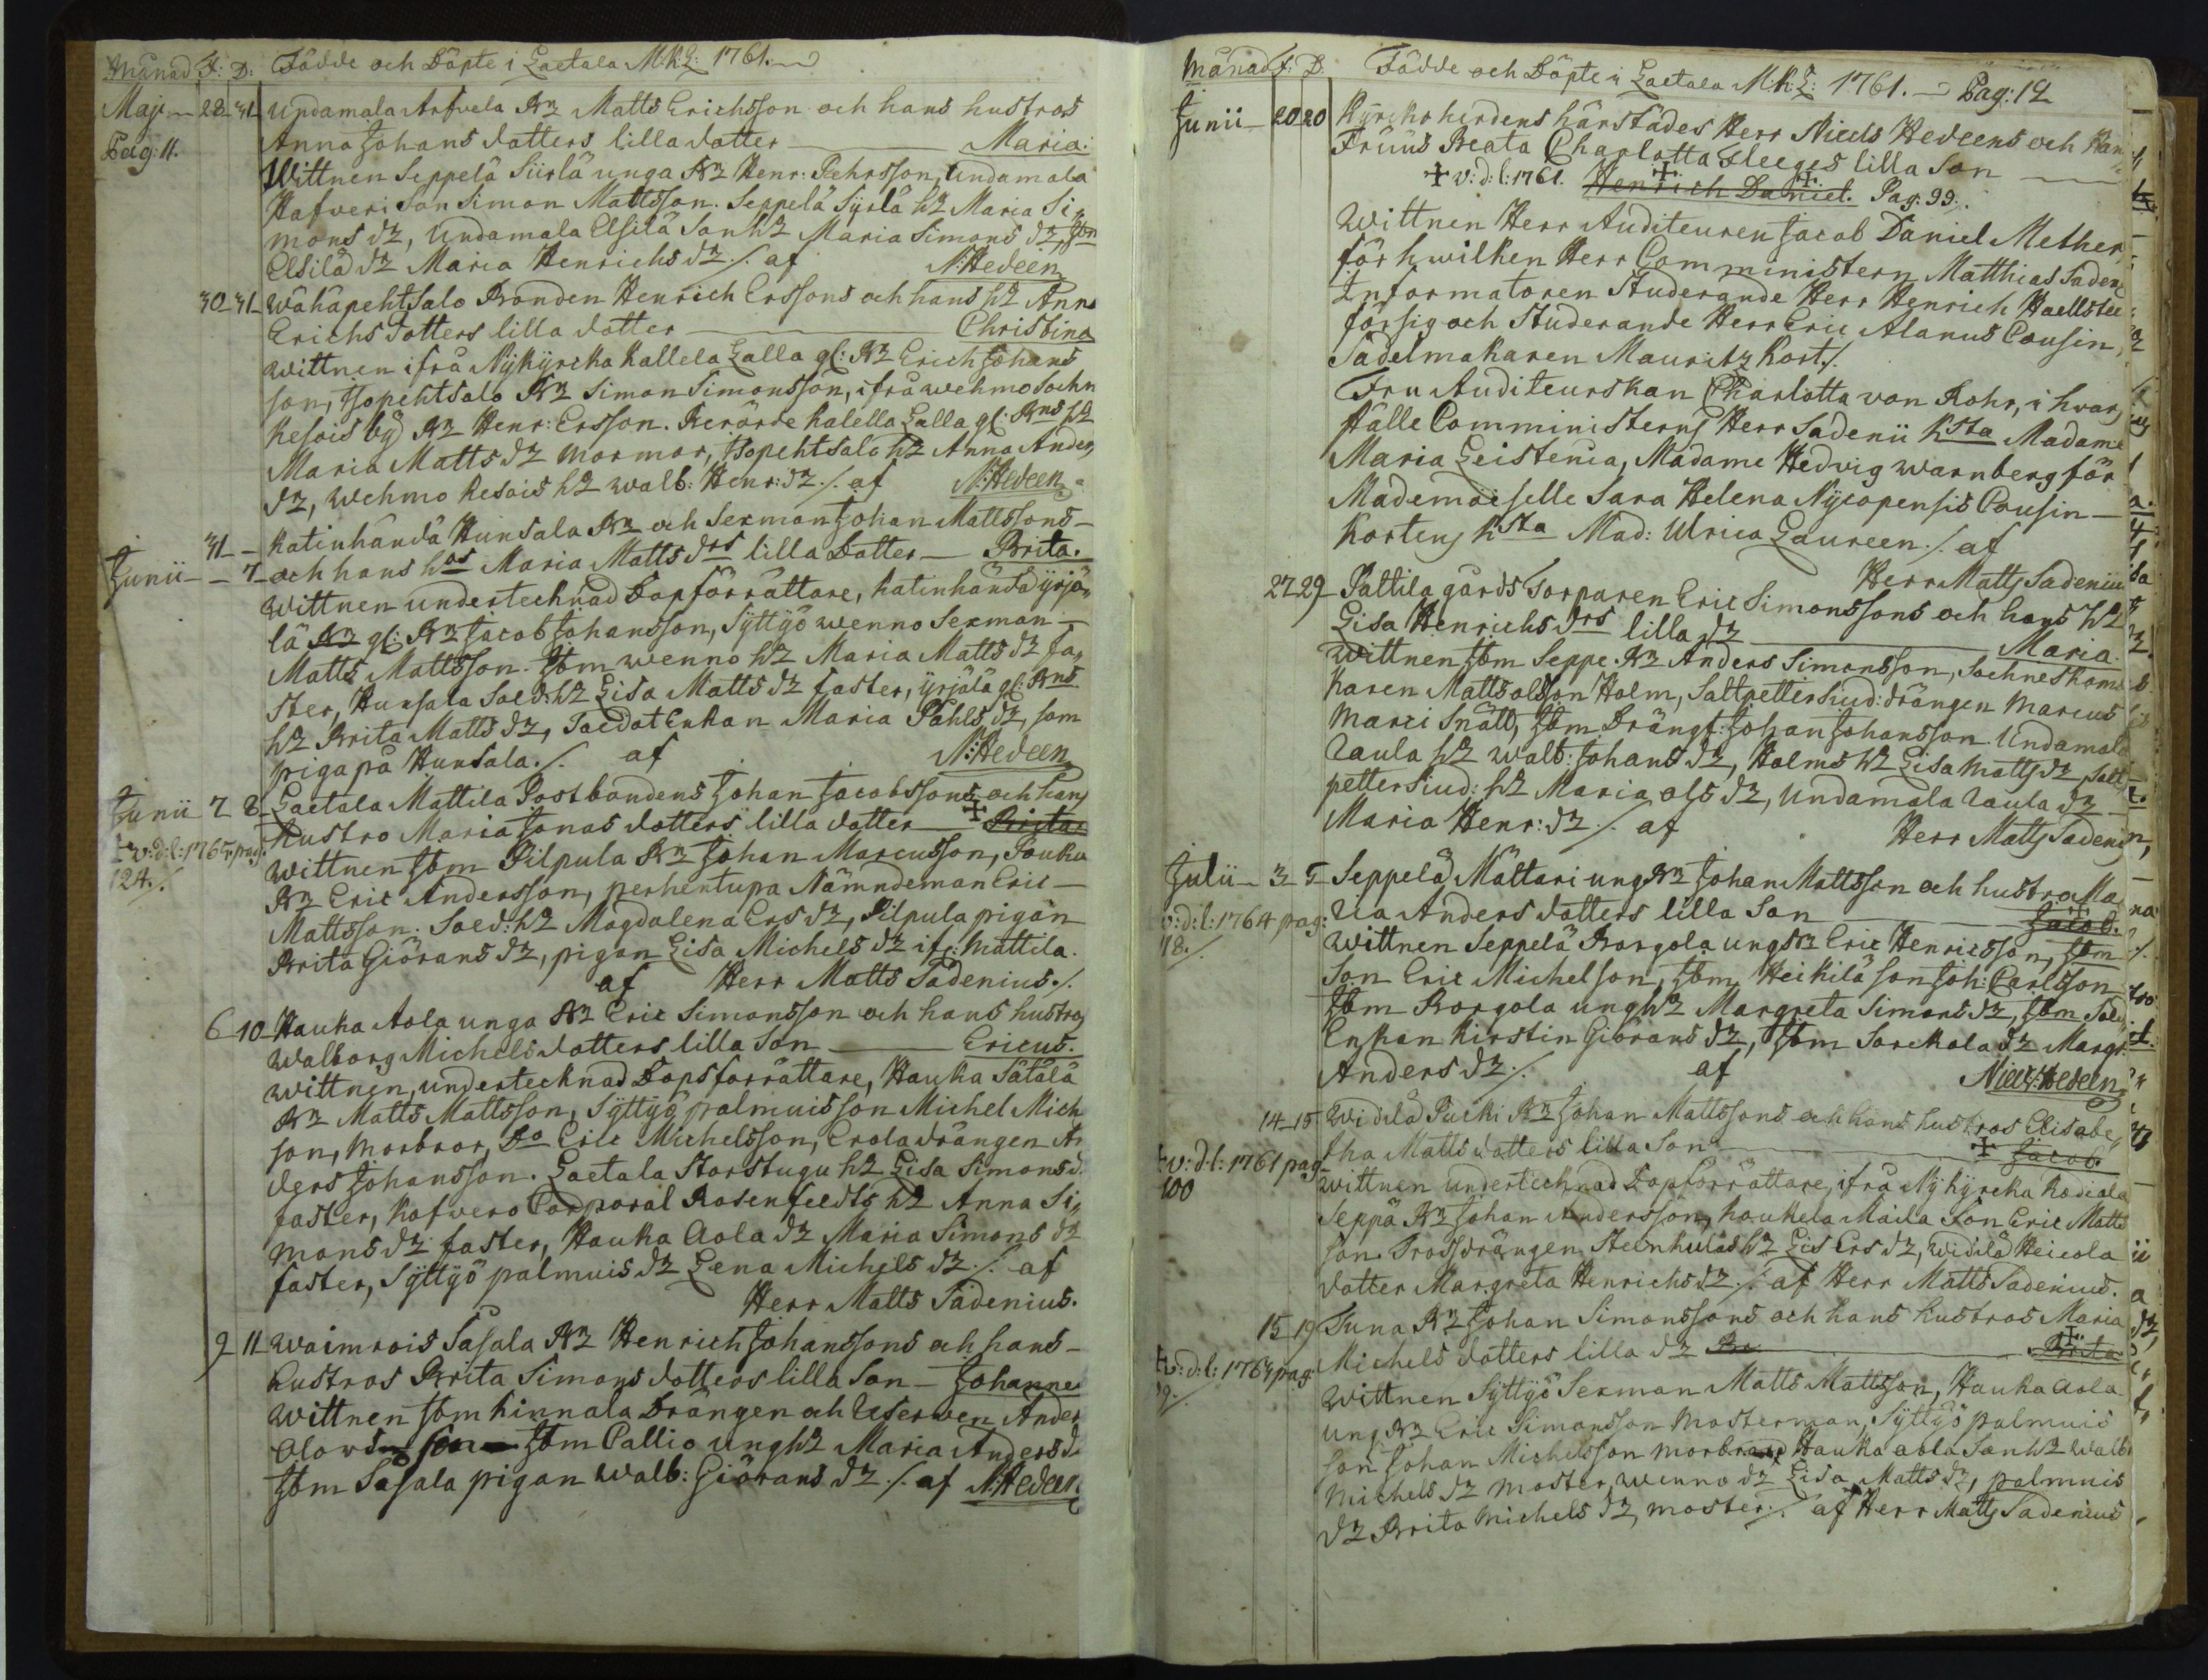 Månad F: D: Födde och Döpte i Laetala M:K:L: 1761.
Maji 28 31 Undamala Arfvela Bz Matts Erichsson och hans hustros
Pag: 11. Anna Johans dotters lilla dotter Maria:
Wittnen Seppelä Siirlä unga Bz Henr: Pehrsson, Undamala
Hafveri Son Simon Mattsson. Seppelä Syrlä hz Maria Si,,
mons dz, Undamala Elsilä Sonhz Maria Simons dz, Jbm
Elsilä dz Maria Henrichs dz ./. af N: Hedeen
30 31 Wähäpehtsalo Bonden Henrich Erssons och hans hz Anna
Erichs dotters lilla dotter Christina
Wittnen ifrå Nykyrcka Kallela Lalla gl: Bz Erich Johans
son, Isopehtsalo Bz Simon Simonsson, ifrå Wehmo Sochn
Kesois by Bz Henr: Ersson. Kalella Lalla gl: Bns hz
Maria Matts dz mormor, Isopehtsalo hz Anna Anders
dz, Wehmo Kesois hz Walb: Henr: dz ./. af N: Hedeen
31 Katinhändä Hunsala Bz och Sexman Johan Mattssons
Junii 7 och hans hos Maria Matts drs lilla Dotter Brita.
Wittnen undertechnad Dopförrättare, Katinhändä yrjö,,
lä Bz gl: Bz Jacob Johansson, Syttyö wenno Sexman
Matts Mattsson. Jbm wenno hz Maria Matts dz fa,,
ster, Hunsala Sold: hz Lisa Matts dz faster, yrjälä gl: Bns
hz Brita Matts dz, Soldat Enkan Maria Påhls dz, som
piga på Hunsala ./. af N: Hedeen
Junii 7 8 Laetala Mattila Postbondens Johan Jacobssons och hans
† v: d: l: 1765 pag. Hustro Maria Jonas dotters lilla dotter † Brita
124 ./. Wittnen Jbm Pilpula Bz Johan Marcusson, Pouku
Bz Eric Andersson, perhentupa Nämndeman Eric
Mattsson. Sold: hz Magdalena Ers dz, Pilpula pigan
Brita Giörans dz, pigan Lisa Michels dz if: Mattila.
af Herr Matts Sadenius ./.
6 10 Hauka Aola unga Bz Eric Simonsson och hans hustros
Walborg Michels dotters lilla Son Ericus.
Wittnen, undertecknad Dopsförrättare, Hauka Sätälä
Bz Matts Mattsson, Syttyö palmuis son Michel Mich
son, morbror, Do Eric Michelsson, Erola drängen An
ders Johansson. Laetala Storstugu hz Lisa Simons d.
faster, Kafvero Corporal Rosenfeldts hz Anna Si,,
mons dz faster, Hauka Aola dz Maria Simons dz
faster, Syttyö palmuis dz Lena Michels dz ./. af
Herr Matts Sadenius.
9 11 Waimrois Sasala Bz Henrich Johanssons och hans
hustros Brita Simons dotters lilla Son Johannes
Wittnen Jbm hinnala Drängen och Anders
Olows son Jbm Pallio unghz Maria Anders d
Jbm Sasala pigan Walb: Giörans dz ./. af N: Hedeen
Månad F: D. Födde och Döpte i Laetala M:K:L: 1761. Pag: 12
Junii 20 20 Kyrckoherdens härstädes Herr Niels Hedeens och Hans
Fruus Beata Charlotta Fleeges lilla Son
† v: d: l: 1761. Henrich Daniel. Pag: 99.
Wittnen Herr Auditeuren Jacob Daniel Mether,
för hwilken Herr Comministern Matthias Saden,
Informatoren Studerande Herr Henrich Haellstee
för sig och Studerande Herr Eric Alanus Cousin,
Sadelmakaren Mauritz Kort ./.
Fru Auditeurskan Charlotta von Rohr, i hvars
ställe Comministerns Herr Sadenii Ksta Madame
Maria Leistenia, Madame Hedvig Warnberg för
Mademoiselle Sara Helena Nycopensis Cousin
Kortens Ksta Mad: Ulrica Laureen ./. af
Herr Matts Sadenius
27 29 Pattila gårds Torparen Eric Simonssons och hans hz
Lisa Henrichs drs lilla dz Maria.
Wittnen Jbm Seppe. Bz Anders Simonsson, Sochneskoma
karen Matts olsson Holm, Saltpettersiud: drängen Marcus
Marci Snått, Jbm Drängt: Johan Johansson. Undamala
Zaula hz Walb: Johans dz, Holms hz Lisa Matts dz, Salt,,
pettersiud: hz Maria ols dz, Undamala Zaula dz
Maria Henr: dz ./. af Herr Matts Sadenius
Julii 3 5 Seppelä Mättari ung Bz Johan Mattsson och hustro Ma
† v: d: l: 1764 pag: ria Anders dotters lilla Son Jacob.
78 ./. Wittnen Seppelä Borgola ungBz Eric Henricsson, Jbm
Son Eric Michelson, Jbm Heikilä son Joh: Carlsson
Jbm Borgola unghz Margreta Simons dz, Jbm Sold
Enkan Kirstin Giörans dz, Jbm Sorckola dz Margr.
Anders dz ./. af Niels: Hedeen
14 15 Widilä Pucki Bz Johan Mattssons och hans hustros Elisabe,,
† v: d: l: 1761 pag. tha Matts dotters lilla Son † Jacob.
100 Wittnen undertechnad Dopförrättare, ifrå Nykyrcka Kodiala
Seppä Bz Johan Andersson, haukela Maila Son Eric Matts
son. Trossdrängen Steenhulds hz Lis Ers dz, Widilä Heicola
dotter Margreta Henrichs dz ./. af Herr Matts Sadenius.
15 19 Tuna Bz Johan Simonssons och hans hustros Maria
† v: d: l: 1764 pag: Michels dotters lilla dz Brita
Wittnen Syttyö Sexman Matts Mattsson, Hauka Aola
ung Bz Eric Simonsson Mosterman, Syttyö palmuis
son Johan Michelsson morbror Hauka aola Sonhz Walb:
Michels dz Moster, Wenno dz Lisa Matts dz, palmuis
dz Brita Michels dz, moster ./. af Herr Matts Sadenius